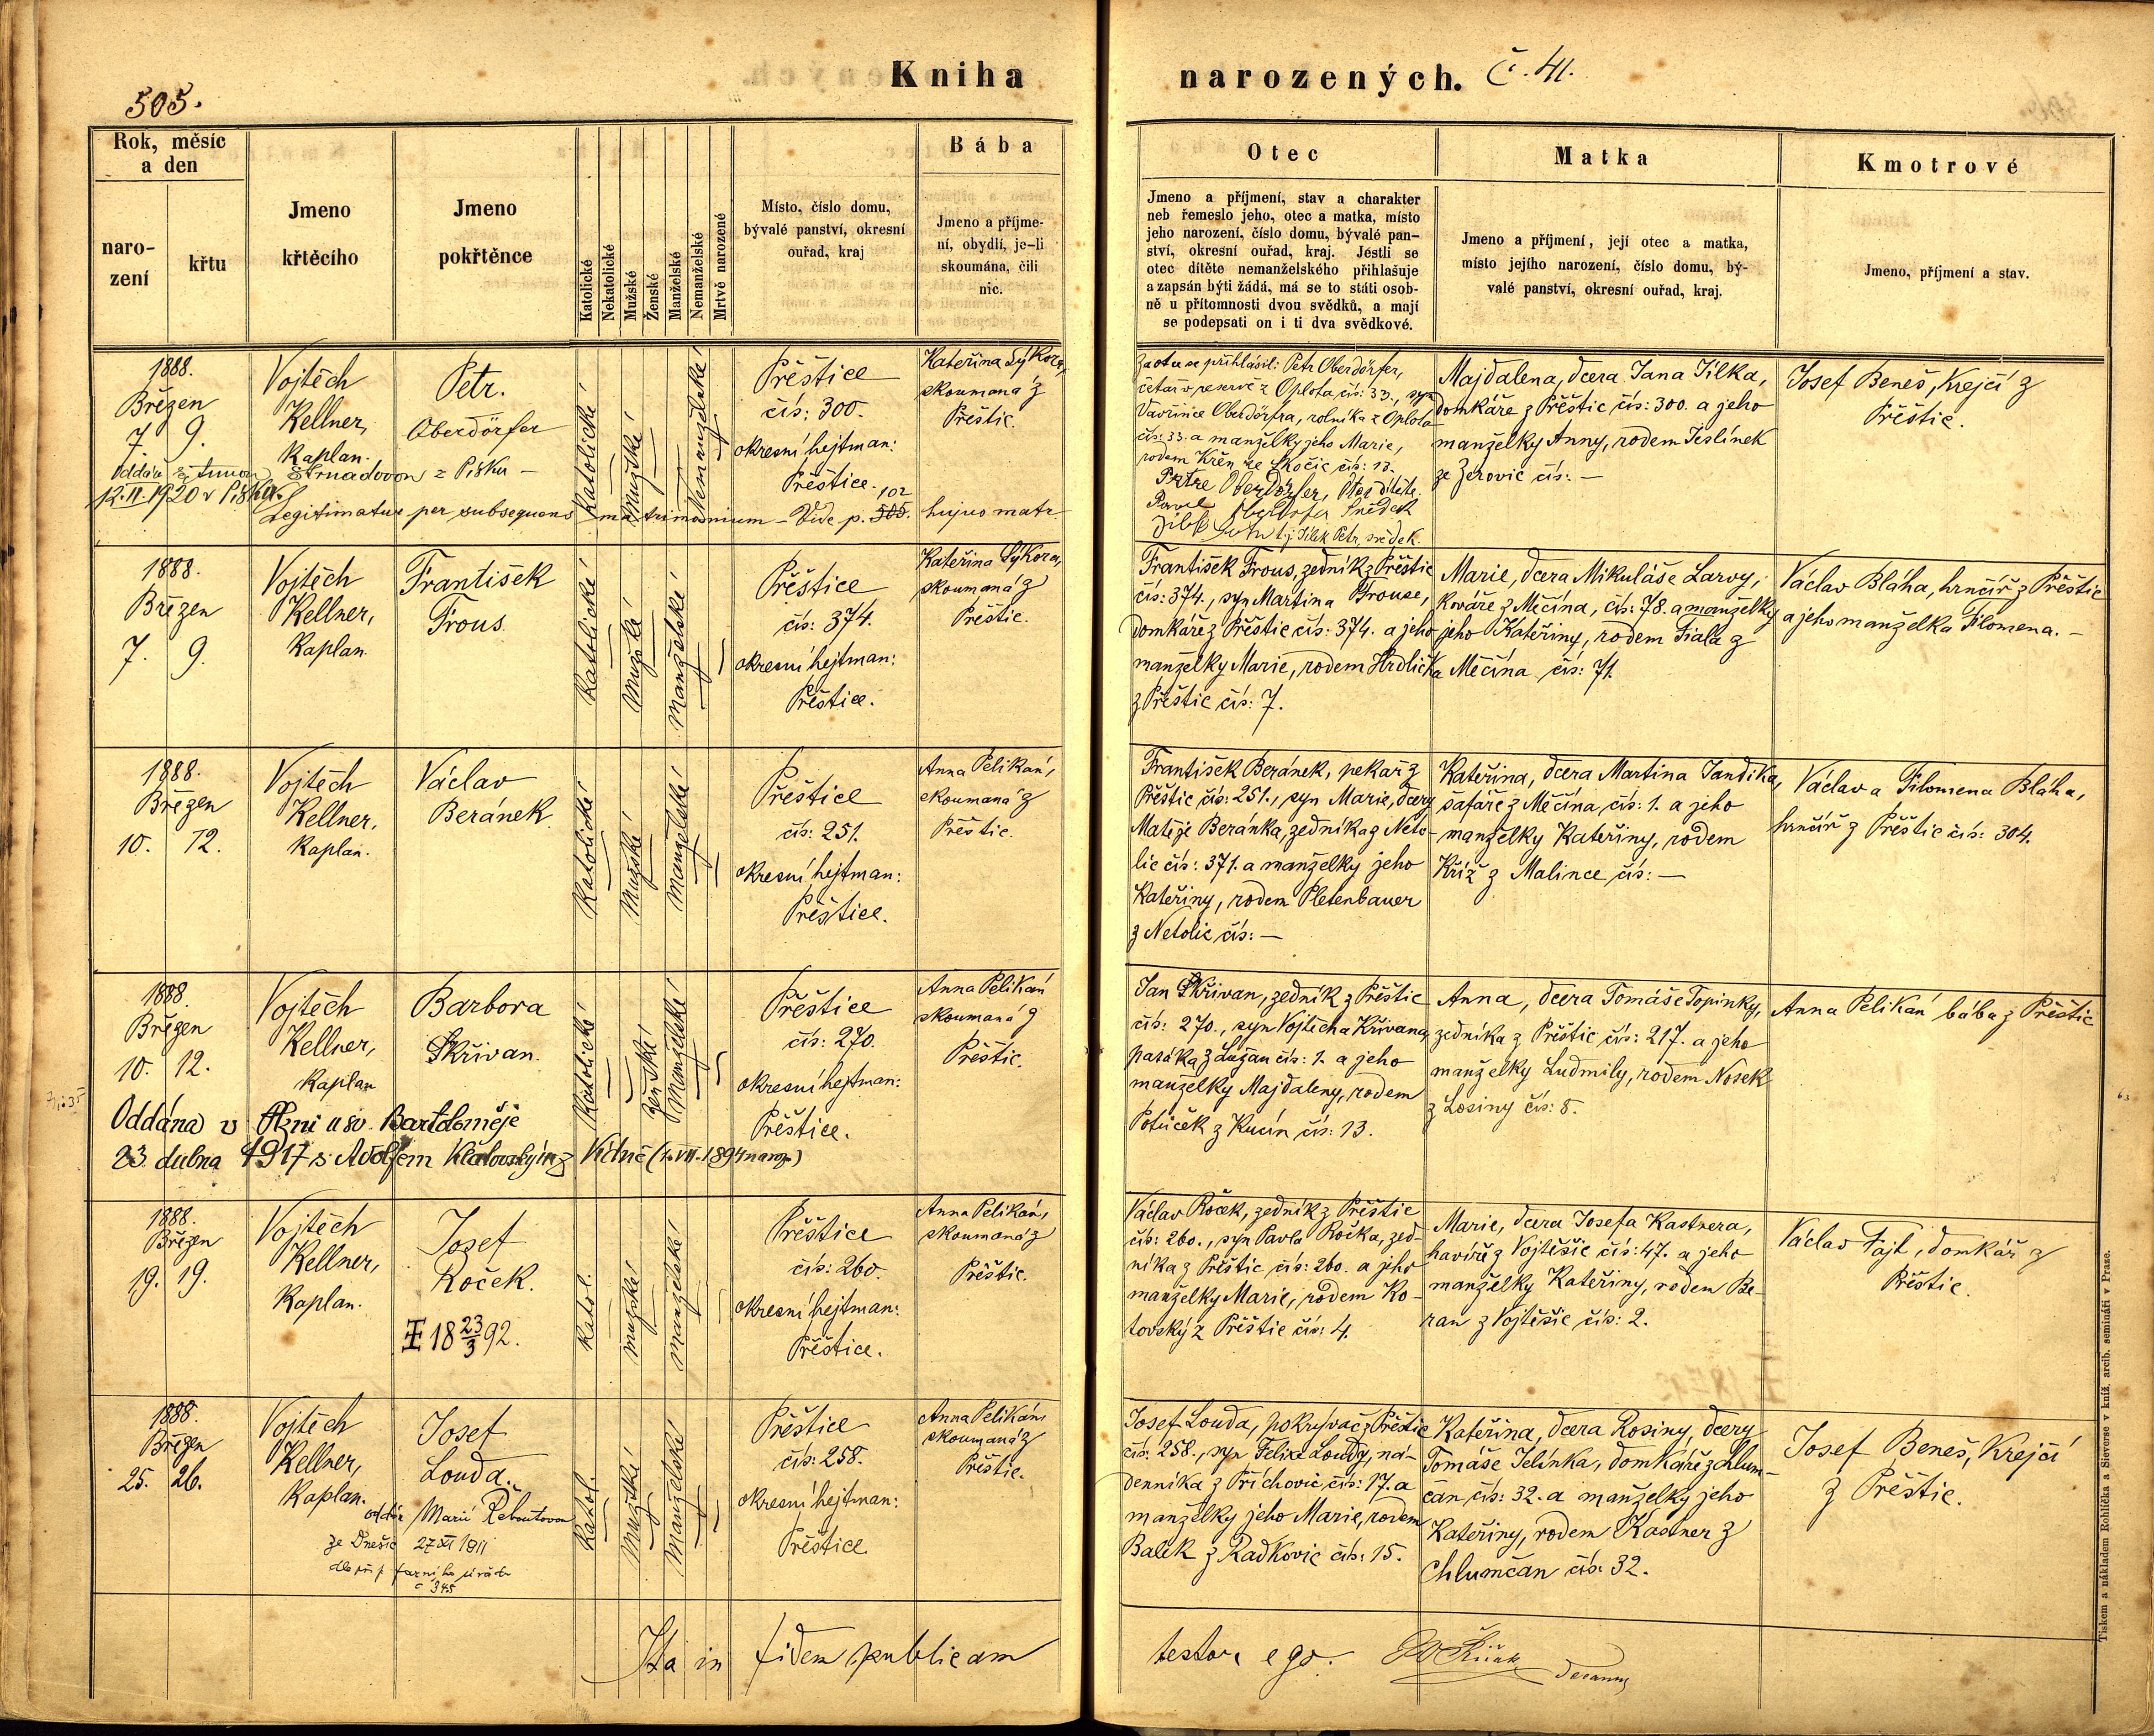 505.
Kniha narozených. č. 41.
Rok, měsíc
a den
naro-
zení
křtu
Jmeno
křtěcího
Jmeno
pokřtěnce
Katolické
Nekatolické
Mužské
Ženské
Manželské
Nemanželské
Mrtvě narozené
Místo, číslo domu,
bývalé panství, okresní
ouřad, kraj
Bába
Jmeno a příjme-
ní, obydlí, je-li
skoumána, čili
nic.
Otec
Jmeno a příjmení, stav a charakter
neb řemeslo jeho, otec a matka, místo
jeho narození, číslo domu, bývalé pan-
ství, okresní ouřad, kraj. Jestli se
otec dítěte nemanželského přihlašuje
a zapsán býti žádá, má se to státi osob-
ně u přítomnosti dvou svědků, a mají
se podepsati on i ti dva svědkové.
Matka
Jmeno a příjmení, její otec a matka,
místo jejího narození, číslo domu, bý-
valé panství, okresní ouřad, kraj.
Kmotrové
Jmeno, příjmení a stav.
1888.
Březen
7. 9.
Vojtěch
Kellner,
Kaplan.
Petr.
Oberdörfer
Katolické
Mužské
Nemanželské
Přeštice
čís: 300.
okresní hejtman:
Přeštice.
Kateřina Sýkora,
skoumaná z
Přeštic.
Za otce se přihlásil: Petr Oberdörfer,
četař v reservě z Oplota čís: 33., syn
Vavřince Oberdörfra, rolníka z Oplota
čís: 33. a manželky jeho Marie,
rodem Křen ze Skočic čís: 13.
Petr Oberdörfer, Otec dítěte.
Pavel Oberdörfer Svědek
Jílek Petr t.j. Jílek Petr, svědek.
Majdalena, dcera Jana Jílka,
domkáře z Přeštic čís: 300. a jeho
manželky Anny, rodem Jeslínek
ze Žerovic čís: —
Josef Beneš, Krejčí z
Přeštic.
Oddán s Annou Strnadovou z Písku —
12. II. 1920 v Písku.
Legitimatur per subsequens matrimonium – Vide p. 505. 102 hujus matr
1888.
Březen
7. 9.
Vojtěch
Kellner,
Kaplan.
František
Frous.
Katolické
Mužské
Manželské
Přeštice
čís: 374.
okresní hejtman:
Přeštice.
Kateřina Sýkora,
skoumaná z
Přeštic.
František Frous, zedník z Přeštic
čís: 374., syn Martina Frouse,
domkáře z Přeštic čís: 374. a jeho
manželky Marie, rodem Hrdlička
z Přeštic čís: 7.
Marie, dcera Mikuláše Larvy,
Kováře z Měčína, čís: 78. a manželky
jeho Kateřiny, rodem Fiala z
Měčína čís: 71.
Václav Bláha, hrnčíř z Přeštic
a jeho manželka Filomena. –
1888.
Březen
10. 12.
Vojtěch
Kellner,
Kaplan.
Václav
Beránek
Katolické
Mužské
Manželské
Přeštice
čís: 251.
okresní hejtman:
Přeštice.
Anna Pelikán,
skoumaná z
Přeštic.
František Beránek, pekař z
Přeštic čís: 251., syn Marie, dcery
Matěje Beránka, zedníka z Neto-
lic čís: 371. a manželky jeho
Kateřiny, rodem Pletenbauer
z Netolic čís: —
Kateřina, dcera Martina Jandíka,
šafáře z Měčína, čís: 1. a jeho
manželky Kateřiny, rodem
Kříž z Malince čís: —
Václav a Filomena Bláha,
hrnčíř z Přeštic čís: 304.
1888.
Březen
10. 12.
Vojtěch
Kellner,
Kaplan
Barbora
Skřivan.
Katolické
Ženské
Manželské
Přeštice
čís: 270.
okresní hejtman:
Přeštice.
Anna Pelikán
skoumaná z
Přeštic.
Jan Skřivan, zedník z Přeštic
čís: 270., syn Vojtěcha Křivana,
pasáka z Lužan čís: 1. a jeho
manželky Majdaleny, rodem
Potůček z Kucín čís: 13.
Anna, dcera Tomáše Topinky,
zedníka z Přeštic čís: 217. a jeho
manželky Ludmily, rodem Nosek
z Losiny čís: 8.
Anna Pelikán bába z Přeštic
Oddána v Plzni u sv. Bartoloměje
23. dubna 1917 s Adolfem Klatovským z Vídně (1. VII. 1894 naroz.)
1888.
Březen
19. 19.
Vojtěch
Kellner,
Kaplan.
Josef
Roček.
18 23/3 92.
Katol.
mužské
manželské
Přeštice
čís: 260.
okresní hejtman:
Přeštice.
Anna Pelikán,
skoumaná z
Přeštic.
Václav Roček, zedník z Přeštic
čís: 260., syn Pavla Ročka, zed-
níka z Přeštic čís: 260. a jeho
manželky Marie, rodem Ko-
tovský z Přeštic čís: 4.
Marie, dcera Josefa Kastnera,
havíře z Vojtěšic čís: 47. a jeho
manželky Kateřiny, rodem Be-
ran z Vojtěšic čís: 2.
Václav Fajt, domkář z
Přeštic.
1888.
Březen
25. 26.
Vojtěch
Kellner,
Kaplan.
Josef
Louda.
oddán s Marií Řeboutovou
ze Dnešic 27 XI 1911
farního úřadu
č 345
Katol.
Mužské
Manželské
Přeštice
čís: 258.
okresní hejtman:
Přeštice
Anna Pelikán,
skoumaná z
Přeštic.
Josef Louda, pokrývač z Přeštic
čís: 258., syn Felixe Loudy, ná-
denníka z Příchovic čís: 17. a
manželky jeho Marie, rodem
Balík z Radkovic čís: 15.
Kateřina, dcera Rosiny, dcery
Tomáše Jelínka, domkáře z Chlum-
čan čís: 32. a manželky jeho
Kateřiny, rodem Kastner z
Chlumčan čís: 32.
Josef Beneš, Krejčí
z Přeštic.
Ita in fidem publicam testor ego.
Decanus
Tiskem a nákladem Rohlíčka a Sieverse v kníž. arcib. semináři v Praze.